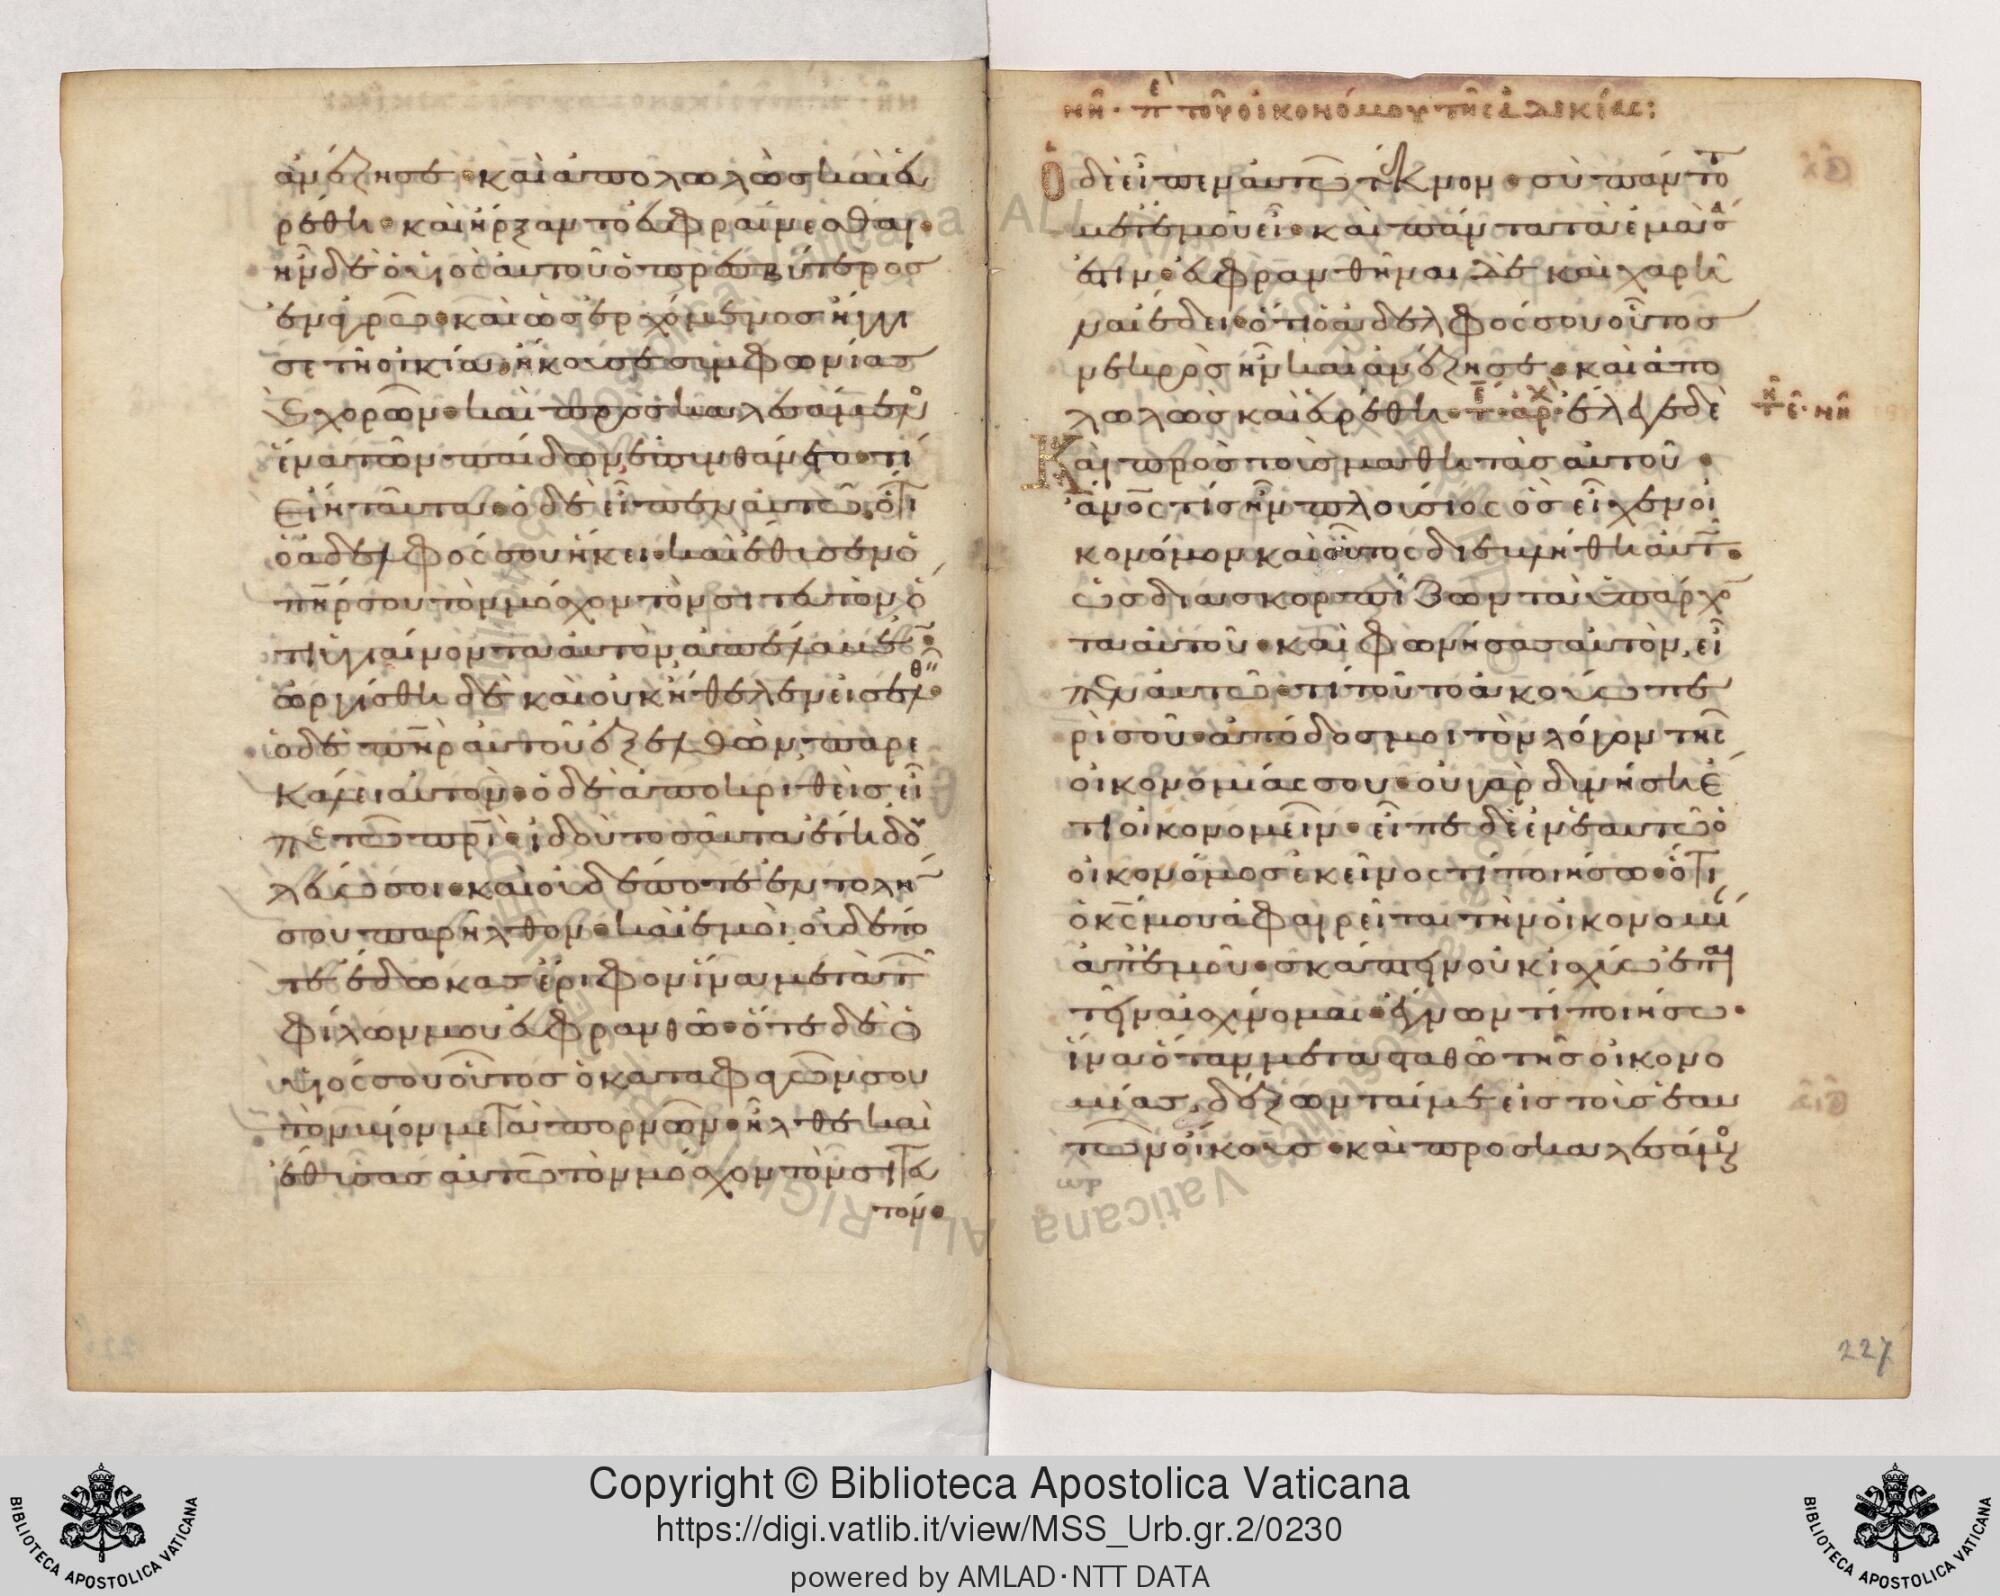 ἀνέζησε· καὶ ἀπολωλὼς καὶ εὑ
ρέθη· καὶ ἤρξαντο εὐφραίνεσθαι·
ἦν δὲ ὁ υἱὸς αὐτοῦ ὁ πρεσβύτερος
ἐν ἀγρῶ· καὶ ὡς ἐρχόμενος ἤγγι
σε τῆ οἰκία, ἤκουσε συμφωνίας
καὶ χορῶν· καὶ προσκαλεσάμενος
ἕνα τῶν παίδων ἐπυνθάνετο· τί
εἴη ταῦτα· ὁ δὲ εἶπεν αὐτῶ, ὅτι
ὁ ἀδελφός σου ἥκει· καὶ ἔθυσεν ὁ
πηρ σου τὸν μόσχον τὸν σιτευτὸν ὅ
τι ὑγιαίνοντα αὐτὸν ἀπέλαβεν·
ὠργίσθη δὲ καὶ οὐκ ἤθελεν εἰσελθεῖν·
ὁ δὲ πηρ αὐτοῦ ἐξελθὼν, παρε
κάλει αὐτὸν· ὁ δὲ ἀποκριθεὶς εἶ
πε τῶ πρι· ἰδοὺ τοσαῦτα ἔτη δου
λεύω σοι· καὶ οὐδέποτε ἐντολήν
σου παρῆλθον· καὶ ἐμοὶ οὐδέπο
τε ἔδωκας ἔριφον ἵνα μετὰ τῶν
φίλων μου εὐφρανθῶ· ὅτε δὲ ὁ
υἱός σου οὗτος ὁ καταφαγών σου
τὸν βίον μετὰ πορνῶν· ἦλθε καὶ
ἔθυσας αὐτῶ τὸν μόσχον τὸν σιτευ
τόν·
νη· πε τοῦ οἰκονόμου τῆς ἀδικίας:
Ὁ δὲ εἶπεν αὐτῶ τέκνον· σὺ πάντοτε
μετ' ἐμοῦ εἶ· καὶ πάντα τὰ ἐμὰ σά
ἐστιν· εὐφρανθῆναι δὲ καὶ χαρῆ
ναι ἔδει· ὅτι ὁ ἀδελφός σου οὗτος
νεκρὸς ἦν καὶ ἀνέζησε· καὶ ἀπο
λωλὼς καὶ εὑρέθη· τε· ἀρχ· ἔλεγε δὲ
Καὶ πρὸς τοὺς μαθητὰς αὐτοῦ·
ἄνος τίς ἦν πλούσιος ὃς εἶχεν οἰ
κονόμον καὶ οὗτος διεβλήθη αὐτῶ·
ὡς διασκορπίζων τὰ ὑπάρχον
τα αὐτοῦ· καὶ φωνήσας αὐτὸν, εἶ
πεν αὐτῶ· τί τοῦτο ἀκούω πε
ρὶ σοῦ· ἀπόδος μοι τὸν λόγον τῆς
οἰκονομίας σου· οὐ γὰρ δυνήση ἔ
τι οἰκονομεῖν· εἶπε δὲ ἐν ἑαυτῶ ὁ
οἰκονόμος ἐκεῖνος τί ποιήσω· ὅτι
ὁ κς μου ἀφαιρεῖται τὴν οἰκονομί
ἀπ' ἐμοῦ· σκάπτειν οὐκ ἰσχύω ἐπαι
τεῖν αἰσχύνομαι· ἔγνων τί ποιήσω·
ἵνα ὅταν μετασταθῶ τῆς οἰκονο
μίας, δέξωνταί με εἰς τοὺς ἑαυ
τῶν οἴκους· καὶ προσκαλεσάμενος
227
Copyright © Biblioteca Apostolica Vaticana
https://digi.vatlib.it/view/MSS_Urb.gr.2/0230
powered by AMLAD·NTT DATA
BIBLIOTECA APOSTOLICA VATICANA
BIBLIOTECA APOSTOLICA VATICANA